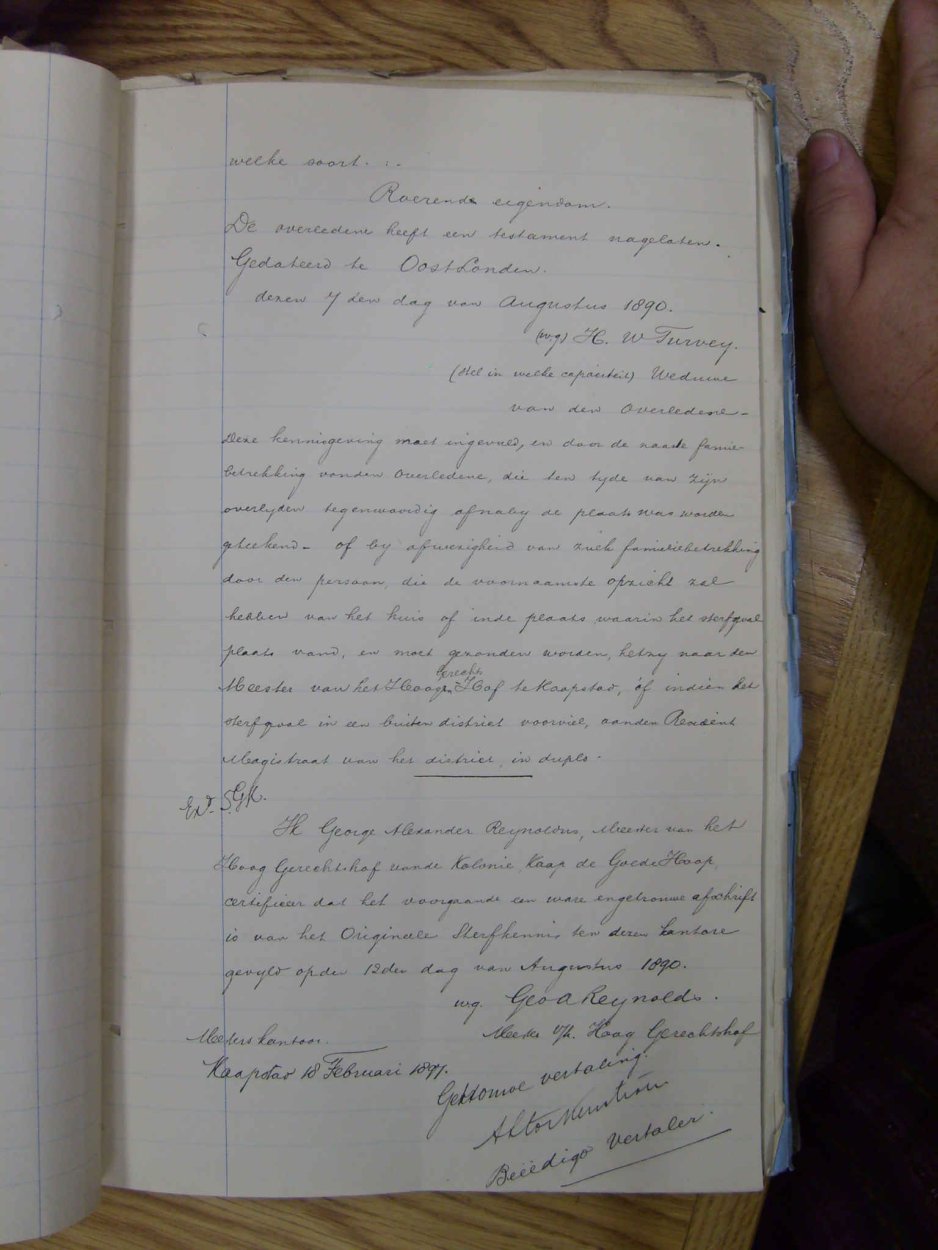 welke soort. :.
Roerende eigendom.
De overledene heeft een testament nagelaten.
Gedateerd te Oost Londen.
dezen 7 den dag van Augustus 1890.
(wg) H. W Turvey.
(stel in welke capaciteit) Weduwe
van den Overledene -
Deze kennisgeving moet ingevuld, en door de naaste familie
betrekking vanden Overledene, die ten tyde van zyn
overlyden tegenwoordig of naby de plaats was worden
geteekend - of by afwezigheid van zulk familiebetrekking
door den persoon, die de voornaamste opzicht zal
hebben van het huis of inde plaats waarin het sterfgval
plaats vand, en moet gezonden worden, hetzy naar den
Meester van het Hoog Gerechts Hof te Kaapstad, of indien het
sterfgval in een buiten district voorviel, aanden Resident
Magistraat van het district, in duplo.
Ex.
Ik George Alexander Reynolds, Meester van het
Hoog Gerechtshof vande Kolonie Kaap de Goede Hoop,
certifieer dat het voorgaande een ware engetrouwe afschrift
is van het Origineele Sterfkennis ten dezen kantore
gevyld opden 12den dag van Augustus 1890.
wg. Geo A Reynolds.
Meester v/h. Hoog Gerechtshof
Meesters kantoor.
Kaapstad 18 Februari 1897.
Getrouwe vertaling.
Beëedigd Vertaler.